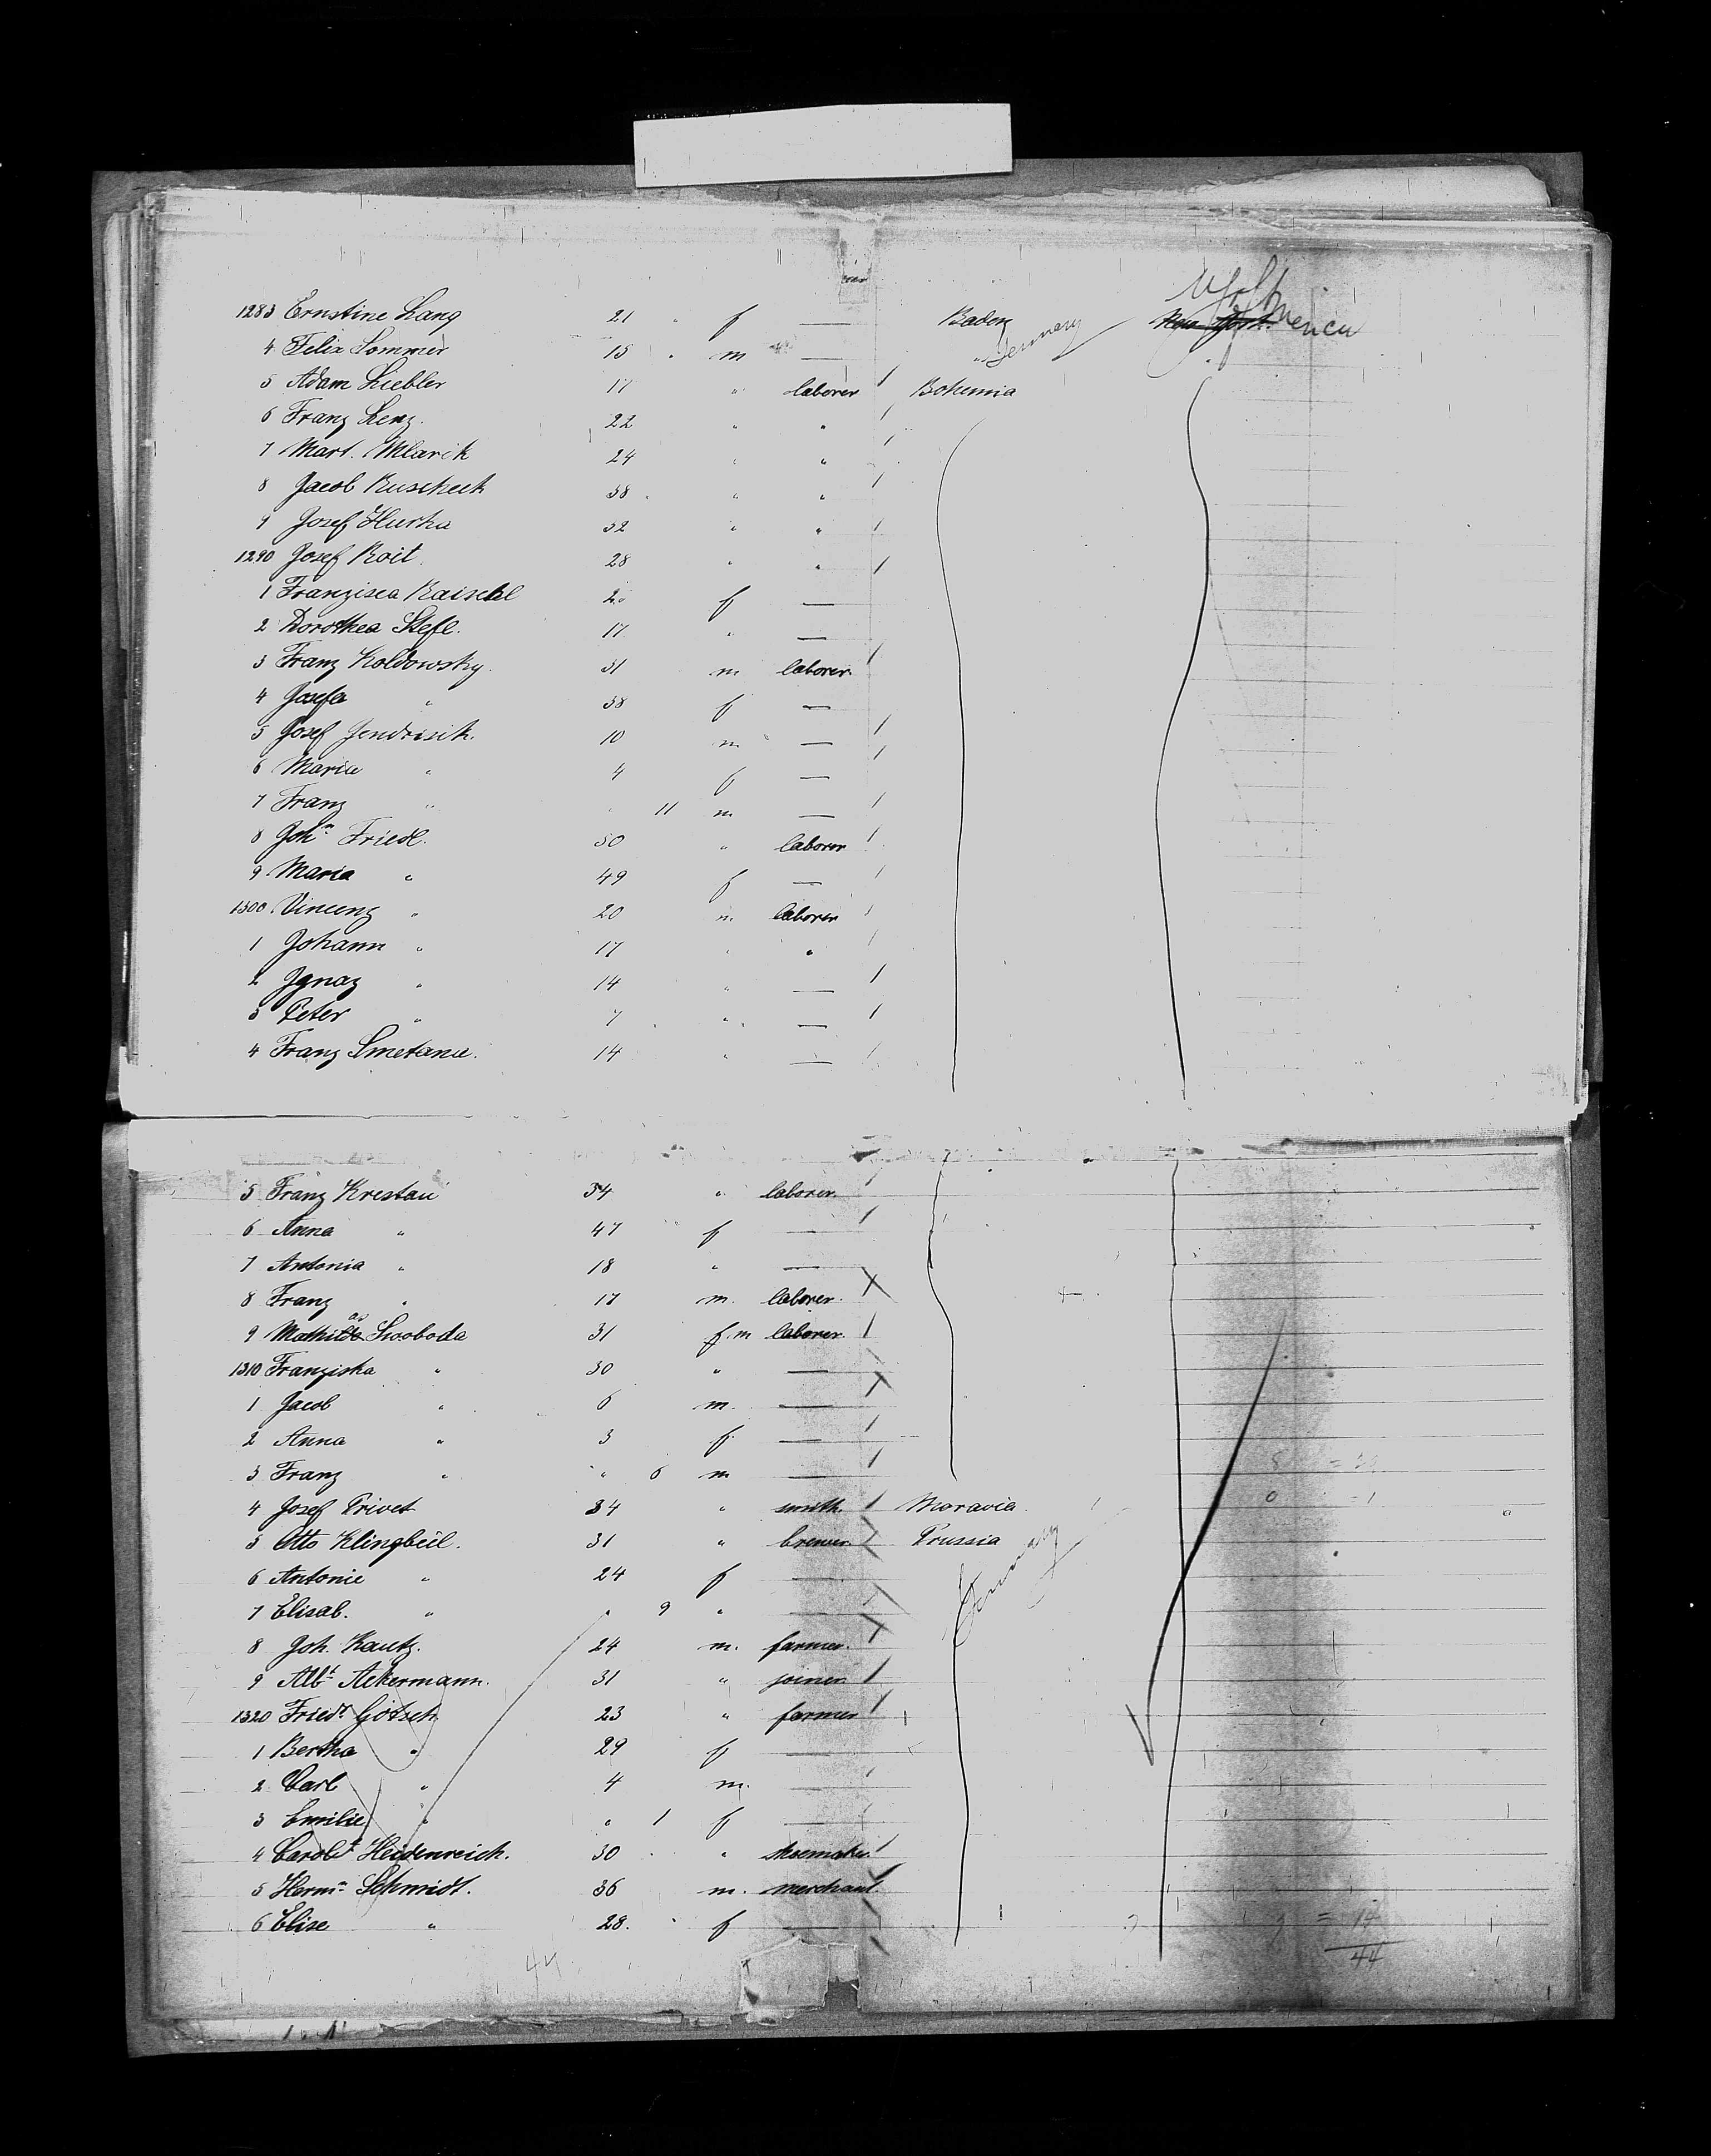 1283 Ernstine Lang 21 " f — Baden New York
4 Felix Sommer 15 " m — " Germany
5 Adam Liebler 17 " laborer Bohemia
6 Franz Lenz. 22 " "
7 Mart. Mlarik 24 " "
8 Jacob Ruscheck 38 " "
9 Josef Hurka 32 " "
1290 Josef Roit. 28 " "
1 Franzisca Raischl 2 f —
2 Dorothea Stefl. 17 " —
3 Franz Koldowsky. 31 m laborer.
4 Josefa " 38 f —
5 Josef Jendrisik. 10 m —
6 Maria " 4 f —
7 Franz " " 11 m —
8 John Friedl. 50 " laborer
9 Maria " 49 f —
1300 Vincenz " 20 m laborer
1 Johann " 17 " "
2 Ignaz " 14 " —
3 Peter " 7 " —
4 Franz Smetana. 14 " —
5 Franz Krestau 34 " laborer.
6 Anna " 47 f —
7 Antonia " 18 " —
8 Franz " 17 m. laborer.
9 Mathias Swoboda 31 f. m laborer.
1310 Franziska " 30 " —
1 Jacob " 6 m. —
2 Anna " 3 f. —
3 Franz " " 6 m —
4 Josef Privet 34 " smith. Moravia
5 Otto Klingbeil. 31 " brewer. Prussia
6 Antonie " 24 f — Germany
7 Elisab. " " 9 " —
8 Joh. Kautz. 24 m. farmer.
9 Albt Ackermann. 31 " joiner.
1320 Friedr Götsch 23 " farmer
1 Bertha " 29 f —
2 Carl " 4 m. —
3 Emilie " " 1 f —
4 Heidenreich. 30 " shoemaker.
5 Herm. Schmidt. 36 m. merchant.
6 Elise " 28. f — = 14
44 44